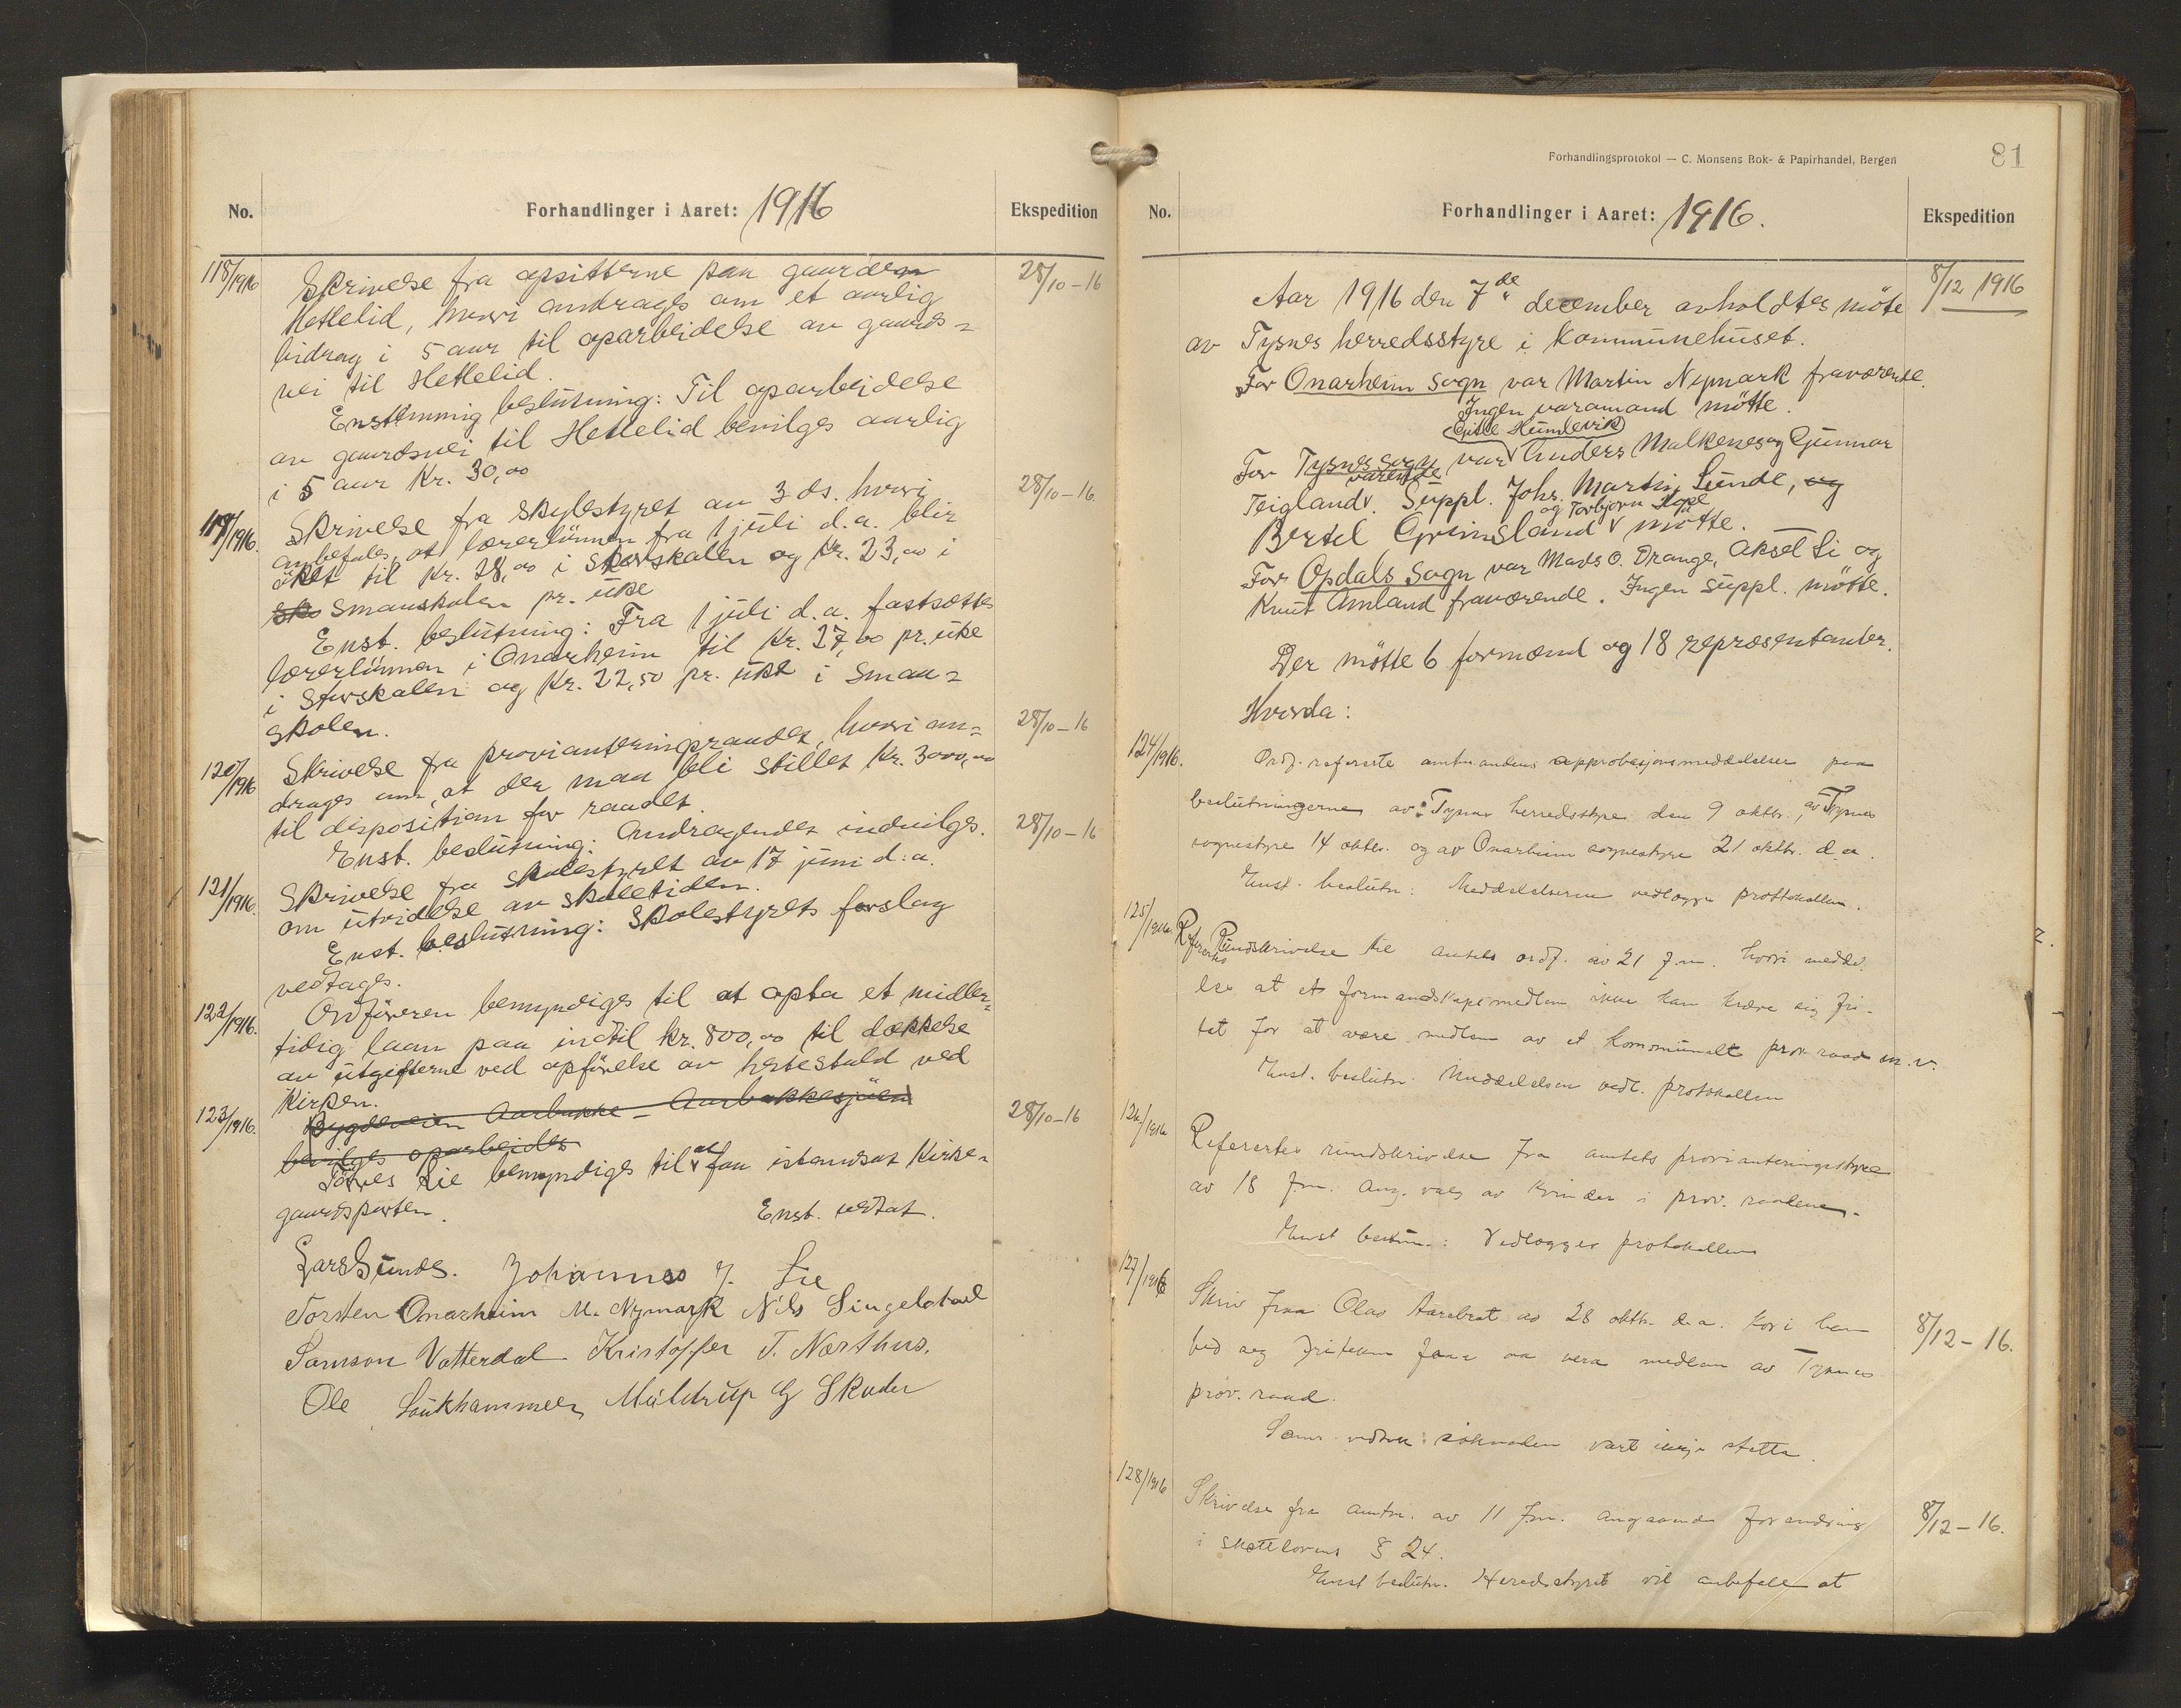 No.
Forhandlinger i Aaret: 1916
Ekspedition
118/1916
Skrivelse fra opsitterne paa gaarden
28/10-16
Hetlelid, hvori andrages om et aarlig
bidrag i 5 aar til oparbeidelse av gaards=
vei til Hetlelid.
Enstemmig beslutning: Til oparbeidelse
av gaardsvei til Hetlelid bevilges aarlig
i 5 aar Kr. 30,00
119/1916.
Skrivelse fra skolestyret av 3 ds. hvori
28/10-16.
anbefales, at lærerlönnen fra 1 juli d.a. blir
öket til Kr. 28,00 i storskolen og Kr. 23,00 i
Sko Smaaskolen pr. uke
Enst. beslutning: Fra 1 juli d.a. fastsættes
lærerlönnen i Onarheim til Kr. 27,00 pr. uke
i Storskolen og Kr. 22,50 pr. uke i Smaa=
skolen.
120/1916
Skrivelse fra provianteringsraadet, hvori an=
28/10-16
drages om, at der maa bli stillet Kr. 3000,00
til disposition for raadet.
Enst. beslutning: Andragendet indvilges.
28/10-16
121/1916.
Skrivelse fra skolestyret av 17 juni d.a.
om utvidelse av skoletiden.
Enst. beslutning: Skolestyrets forslag
vedtages.
122/1916.
Ordföreren bemyndiges til at opta et midler=
tidig laan paa indtil kr. 800,00 til dækkelse
av utgifterne ved opförelse av hestestald ved
Kirken.
123/1916.
Bygdeveien Aarbakke - Aarbakkesjöen
28/10-16
bevilges oparbeidet
Lie bemyndiges til at faa istandsat Kirke=
gaardsporten.
Enst. vedtat.
Lars Sunde. Johannes J. Lie
Torsten Onarheim M. Nymark Nils Singelstad
Samson Vatterdal Kristoffer T. Nærthus.
Ole Laukhammer, Mältrup G Skuder
Forhandlingsprotokol — C. Monsens Bok- & Papirhandel, Bergen
81
No.
Forhandlinger i Aaret: 1916.
Ekspedition
Aar 1916 den 7de december avholdtes möte
8/12 1916
av Tysnes herredsstyre i Kommunehuset.
For Onarheim Sogn var Martin Nymark fraværende.
Ingen varamand mötte.
Eitle Heimlevik
For Tysnes sogn var Anders Malkenes og Gunnar
Teigland. Suppl. Johs. Martin Sunde, og
og Torbjörn Hope
Bertel Grimsland mötte.
For Opdals Sogn var Mads O. Drange, Aksel Li og
Knut Amland fraværende. Ingen Suppl. mötte.
Der mötte 6 formænd og 18 repræsentanter.
Hvorda:
124/1916.
Ordf. refererte amtmandens approbasjonsmeddelelser paa
beslutningerne av: Tysnes herredsstyre den 9 oktbr., av Tysnes
sognestyre 14 oktbr. og av Onarheim sognestyre 21 oktbr. d.a.
Enst. beslutn: Meddelelserne vedlægges protokollen.
125/1916.
Refertes Rundskrivelse til amtets ordf. av 21 f.m. hvori medde-
lse at et formandskapsmedlem ikke kan kræve sig fri-
tat for at være medlem av et kommunalt prov. raad m.v.
Enst. beslutn. Meddelelsen vedl. protokollen
126/1916
Refertes rundskrivelse fra amtets provianteringsstyre
av 18 f.m. ang. valg av kvinder i prov. raadene.
Enst beslutn.: Vedlægges protokollen
127/1916
Skriv fraa Olav Aarebrot av 28 oktbr. d.a. kori han
8/12-16.
bed seg friteken fraa aa vera medlem av Tysnes
prov. raad.
Samr. vedtok: söknaden vart ikkje stetta.
128/1916
Skrivelse fra amtm. av 11 f.m. angaaende forandring
8/12-16.
i skattelovens § 24.
Enst beslutn. Heredsstyret vil anbefale at